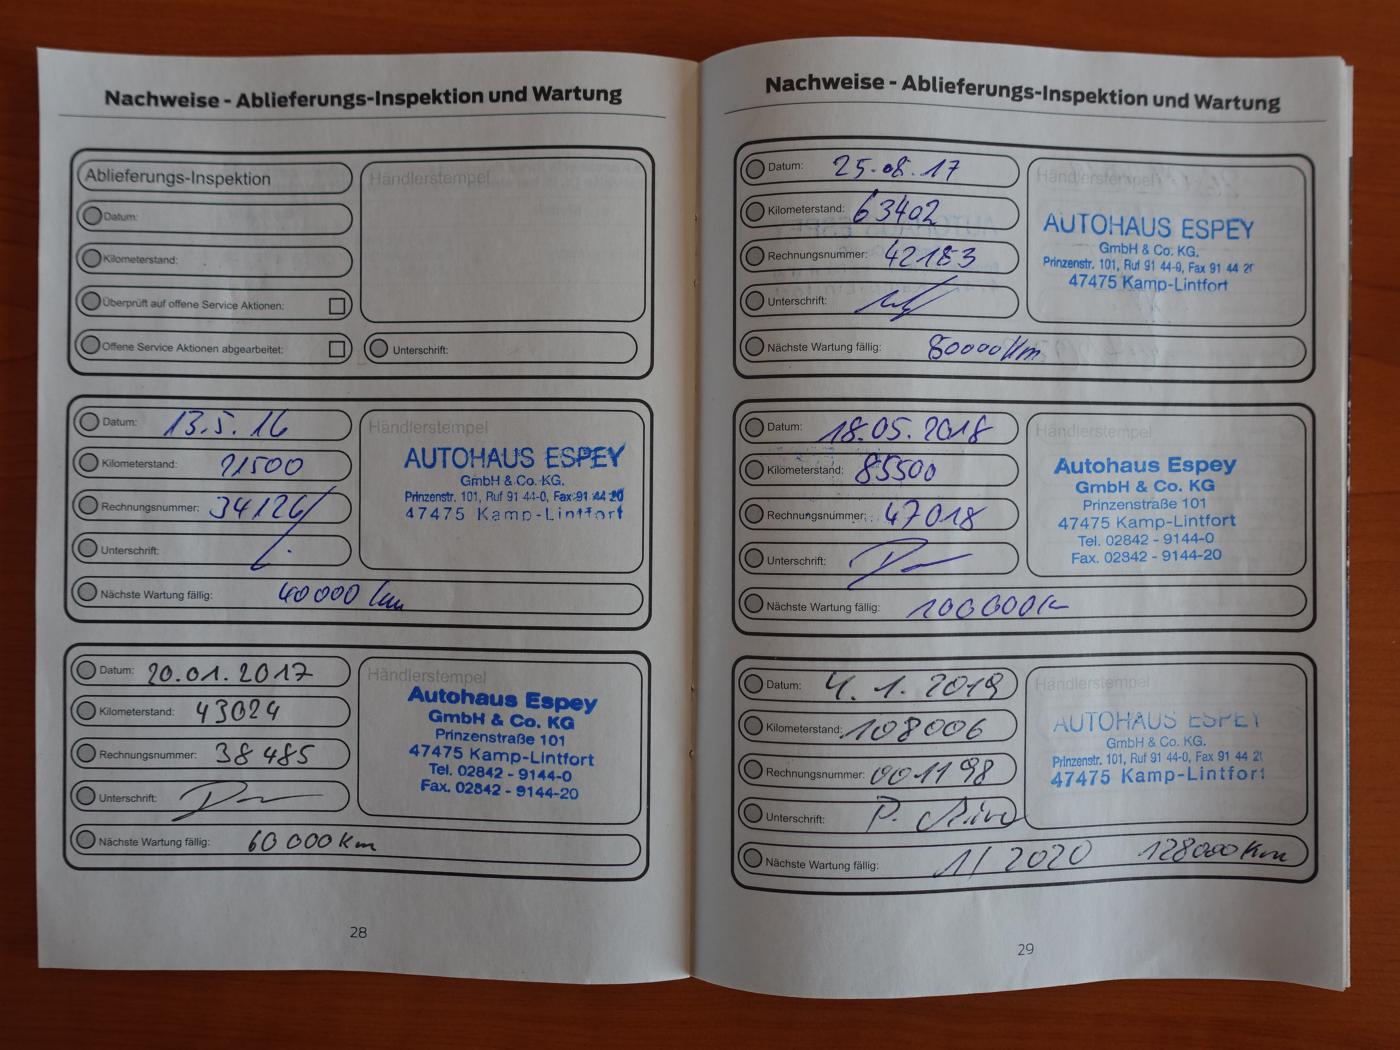 Nachweise - Ablieferungs-Inspektion und Wartung
Ablieferungs-Inspektion
Händlerstempel
Datum:
Kilometerstand:
Überprüft auf offene Service Aktionen:
Offene Service Aktionen abgearbeitet:
Unterschrift:
Datum: 13.5.16
Kilometerstand: 21500
Rechnungsnummer: 34126
Unterschrift:
Nächste Wartung fällig: 40000 km
Händlerstempel
AUTOHAUS ESPEY
GmbH & Co. KG.
Prinzenstr. 101, Ruf 91 44-0, Fax 91 44 20
47475 Kamp-Lintfort
Datum: 20.01.2017
Kilometerstand: 43024
Rechnungsnummer: 38485
Unterschrift:
Nächste Wartung fällig: 60000 Km
Händlerstempel
Autohaus Espey
GmbH & Co. KG
Prinzenstraße 101
47475 Kamp-Lintfort
Tel. 02842 - 9144-0
Fax. 02842 - 9144-20
28
Nachweise - Ablieferungs-Inspektion und Wartung
Datum: 25.08.17
Kilometerstand: 63402
Rechnungsnummer: 42183
Unterschrift:
Nächste Wartung fällig: 80000 Km
Händlerstempel
AUTOHAUS ESPEY
GmbH & Co. KG.
Prinzenstr. 101, Ruf 91 44-0, Fax 91 44 2
47475 Kamp-Lintfort
Datum: 18.05.2018
Kilometerstand: 85500
Rechnungsnummer: 47018
Unterschrift:
Nächste Wartung fällig: 100000 K
Händlerstempel
Autohaus Espey
GmbH & Co. KG
Prinzenstraße 101
47475 Kamp-Lintfort
Tel. 02842 - 9144-0
Fax. 02842 - 9144-20
Datum: 4.1.2019
Kilometerstand: 108006
Rechnungsnummer: 001198
Unterschrift: P.
Nächste Wartung fällig: 1/2020 128000 Km
Händlerstempel
AUTOHAUS ESPEY
GmbH & Co. KG.
Prinzenstr. 101, Ruf 91 44-0, Fax 91 44 2
47475 Kamp-Lintfort
29